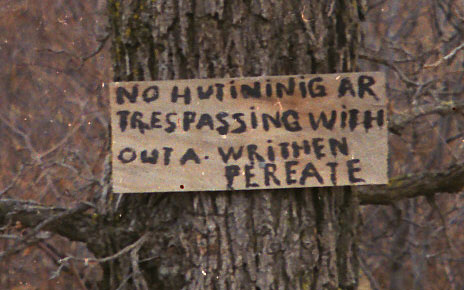 NO HUTININIG AR
TRESPASSING WITH
OUT A. WRITHEN
PEREATE